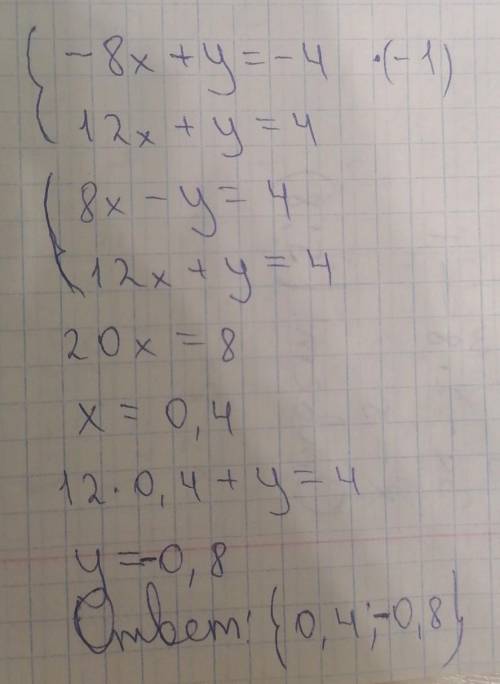 { -8x + y = -4 ·(-1)
12x + y = 4
{ 8x - y = 4
12x + y = 4
20x = 8
x = 0,4
12·0,4 + y = 4
y = -0,8
Ответ: {0,4; -0,8}